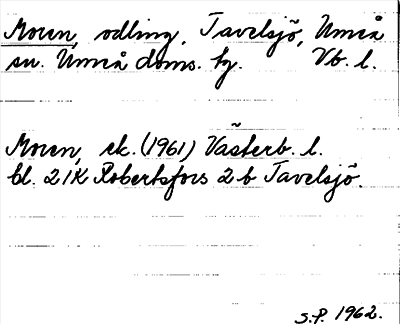 Moren, odling, Tavelsjö, Umeå
sn. Umeå doms. tg. Vb. l.
Moren, ek. (1961) Västerb. l.
bl. 21K Robertsfors 2 b Tavelsjö.
S.P. 1962.